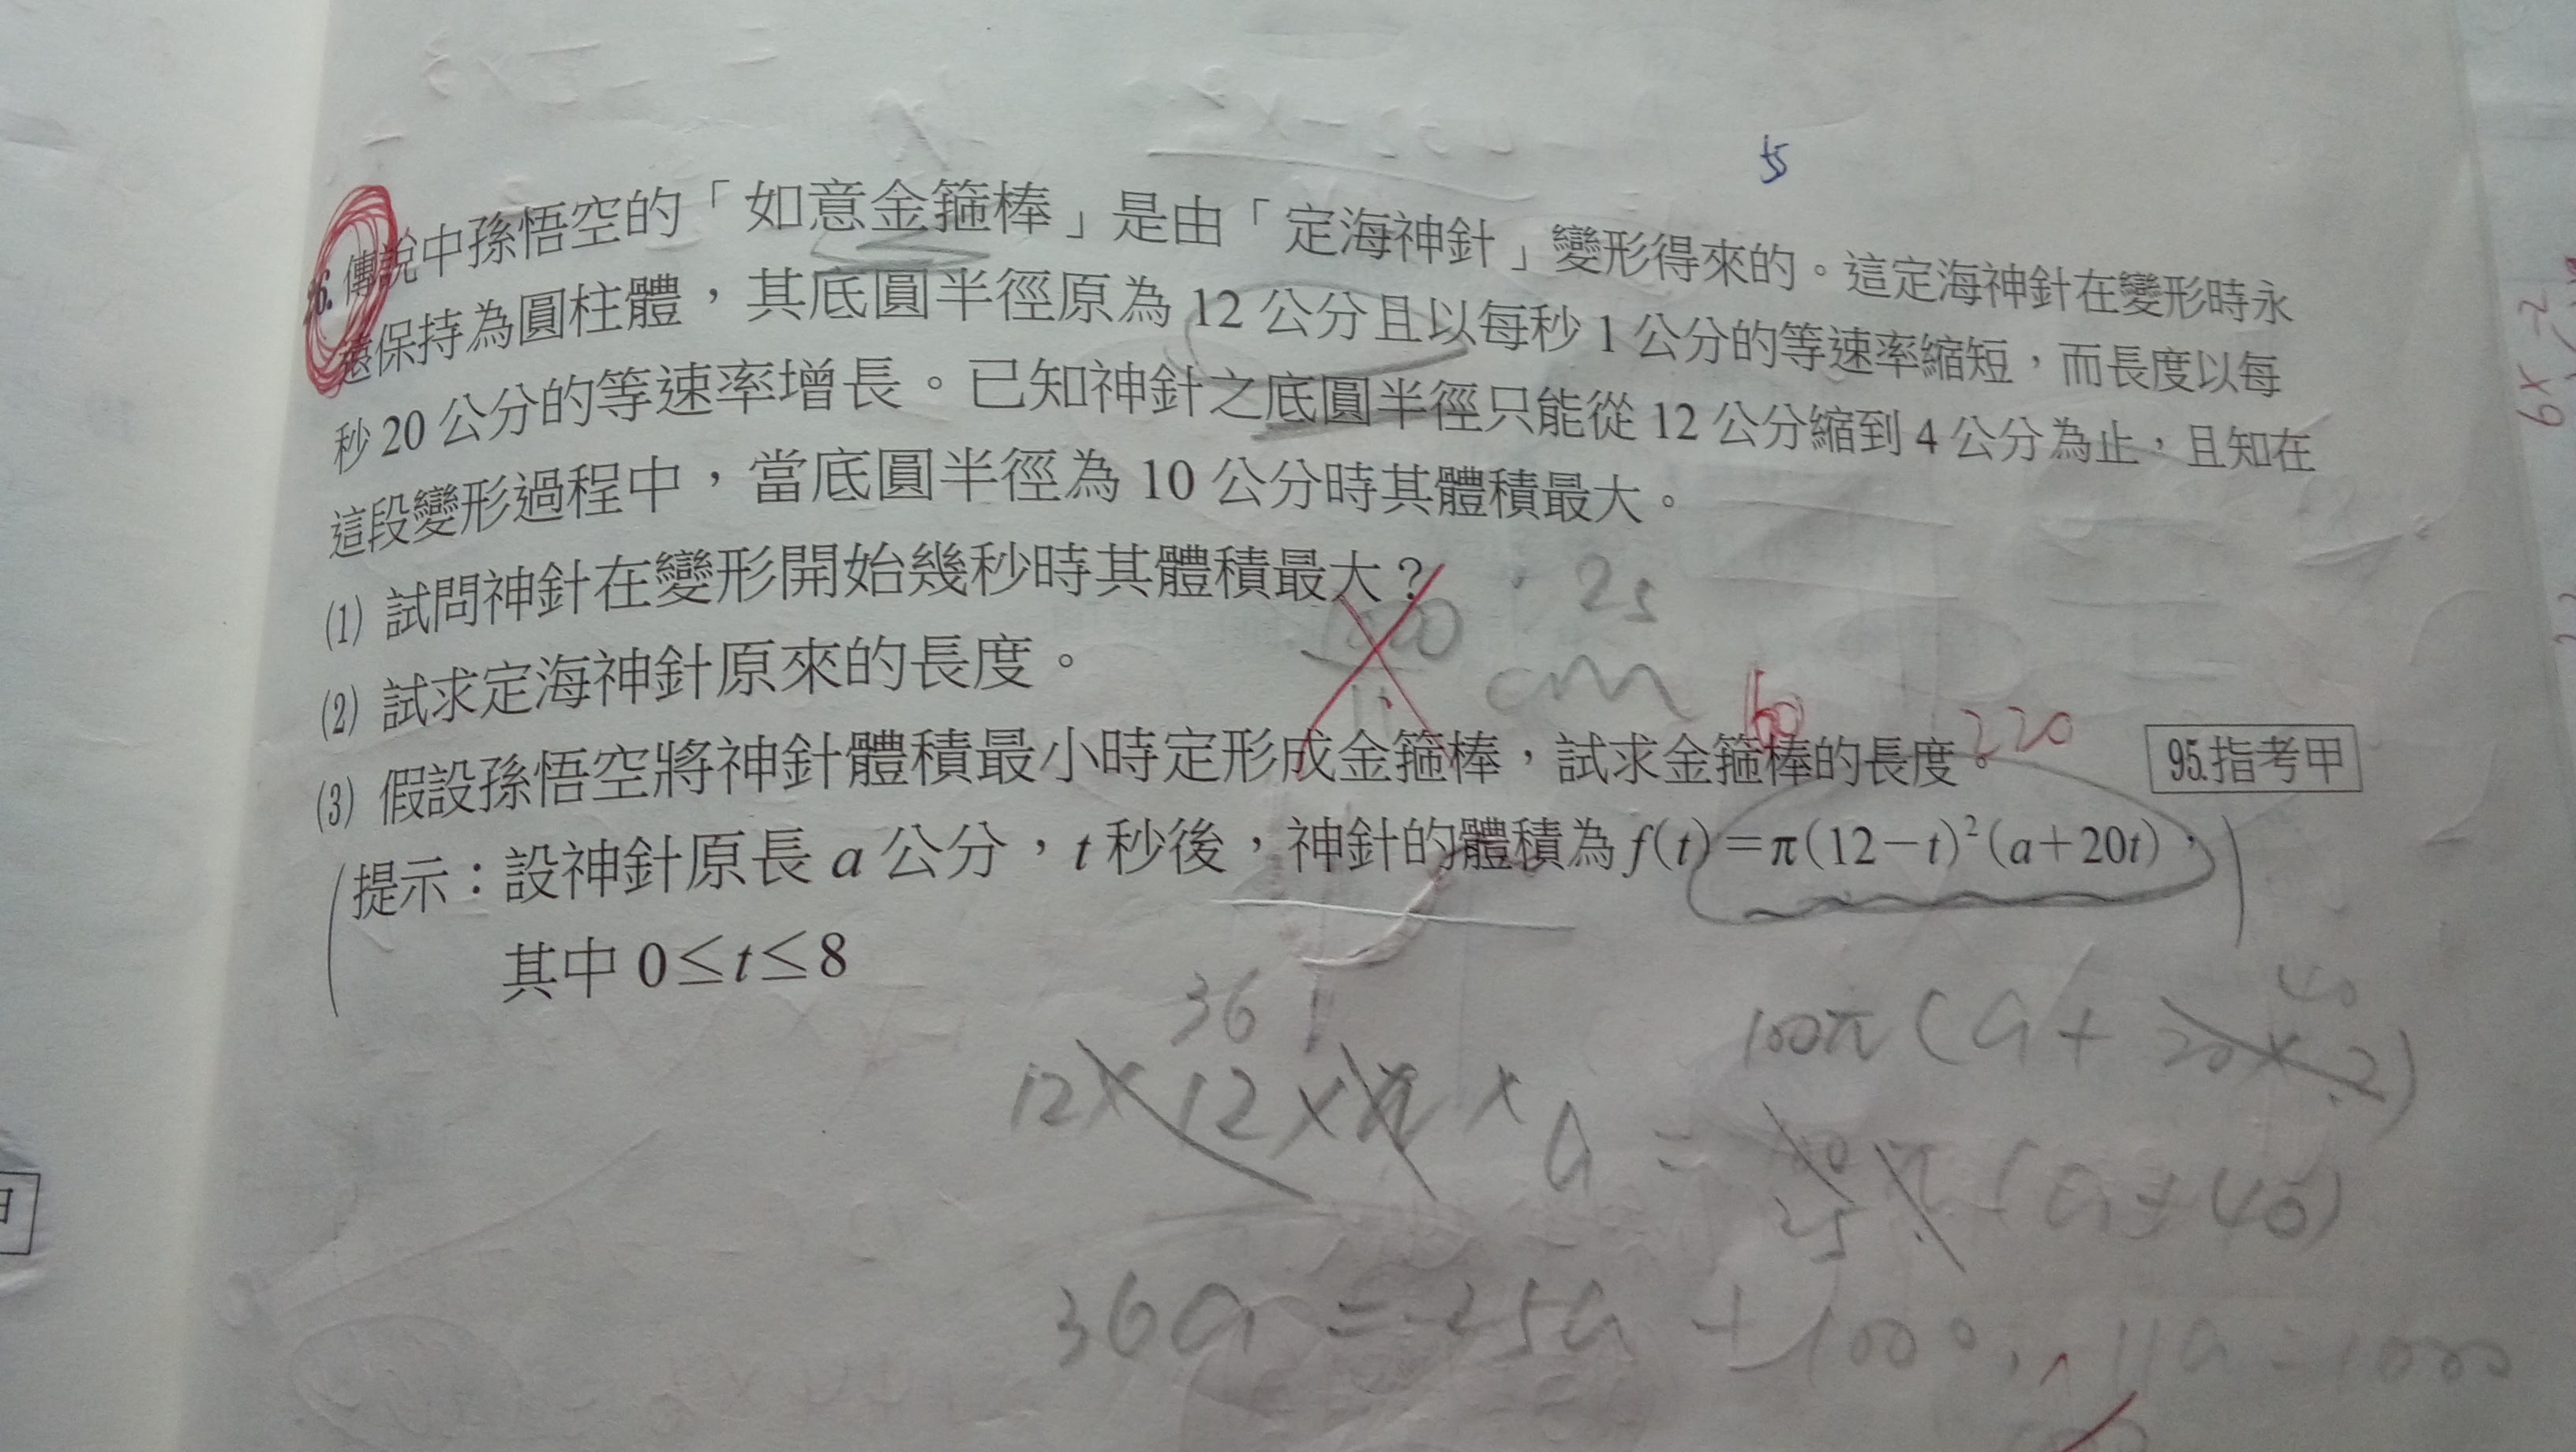 ts
26. 傳說中孫悟空的「如意金箍棒」是由「定海神針」變形得來的。這定海神針在變形時永
遠保持為圓柱體，其底圓半徑原為 12 公分且以每秒 1 公分的等速率縮短，而長度以每
秒 20 公分的等速率增長。已知神針之底圓半徑只能從 12 公分縮到 4 公分為止，且知在
這段變形過程中，當底圓半徑為 10 公分時其體積最大。
(1) 試問神針在變形開始幾秒時其體積最大？ 2s
(2) 試求定海神針原來的長度。 cm 60
(3) 假設孫悟空將神針體積最小時定形成金箍棒，試求金箍棒的長度。 220 95.指考甲
(提示：設神針原長 a 公分，t 秒後，神針的體積為 f(t)=π(12−t)²(a+20t)，
其中 0≤t≤8)
100π(a+20×2) 40
36
12×12×π×a = 100π(a+40)
25
36a = 25a + 1000, 11a = 1000
6x-2